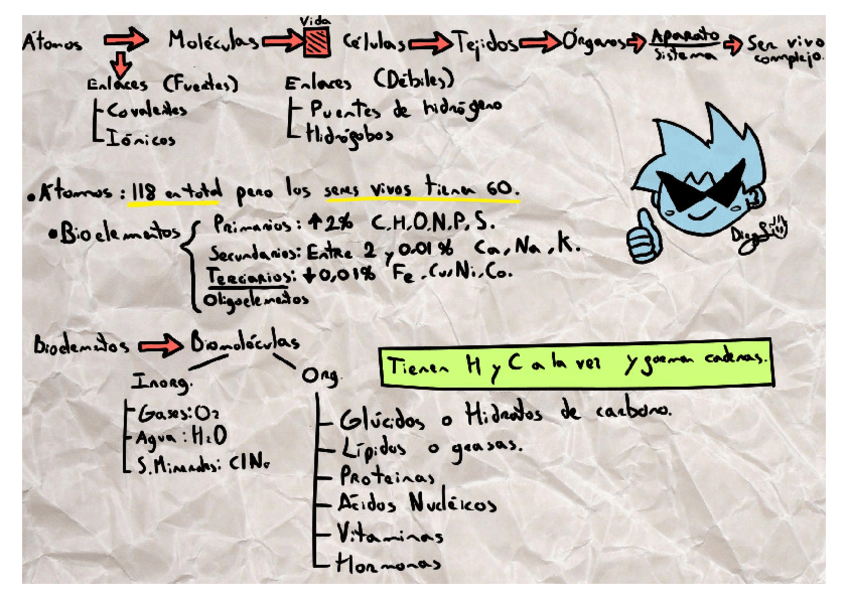 Vida
Átomos Moléculas Células Tejidos Órganos Aparato Sistema Ser vivo complejo.
Enlaces (Fuertes) Enlaces (Débiles)
Covalentes Puentes de hidrógeno
Iónicos Hidrógobos
Átomos: 118 en total pero los seres vivos tienen 60.
Bioelementos Primarios: ↑2% C.H.O.N.P.S.
Secundarios: Entre 2 y 0.01% Ca, Na, K.
Terciarios: ↓0,01% Fe, Cu, Ni, Co.
Oligoelementos
Bioelementos Biomoléculas
Inorg. Org. Tienen H y C a la vez y forman cadenas.
Gases: O2 Glúcidos o Hidratos de carbono.
Agua: H2O Lípidos o grasas.
S. Minerales: ClNa Proteínas
Ácidos Nucléicos
Vitaminas
Hormonas